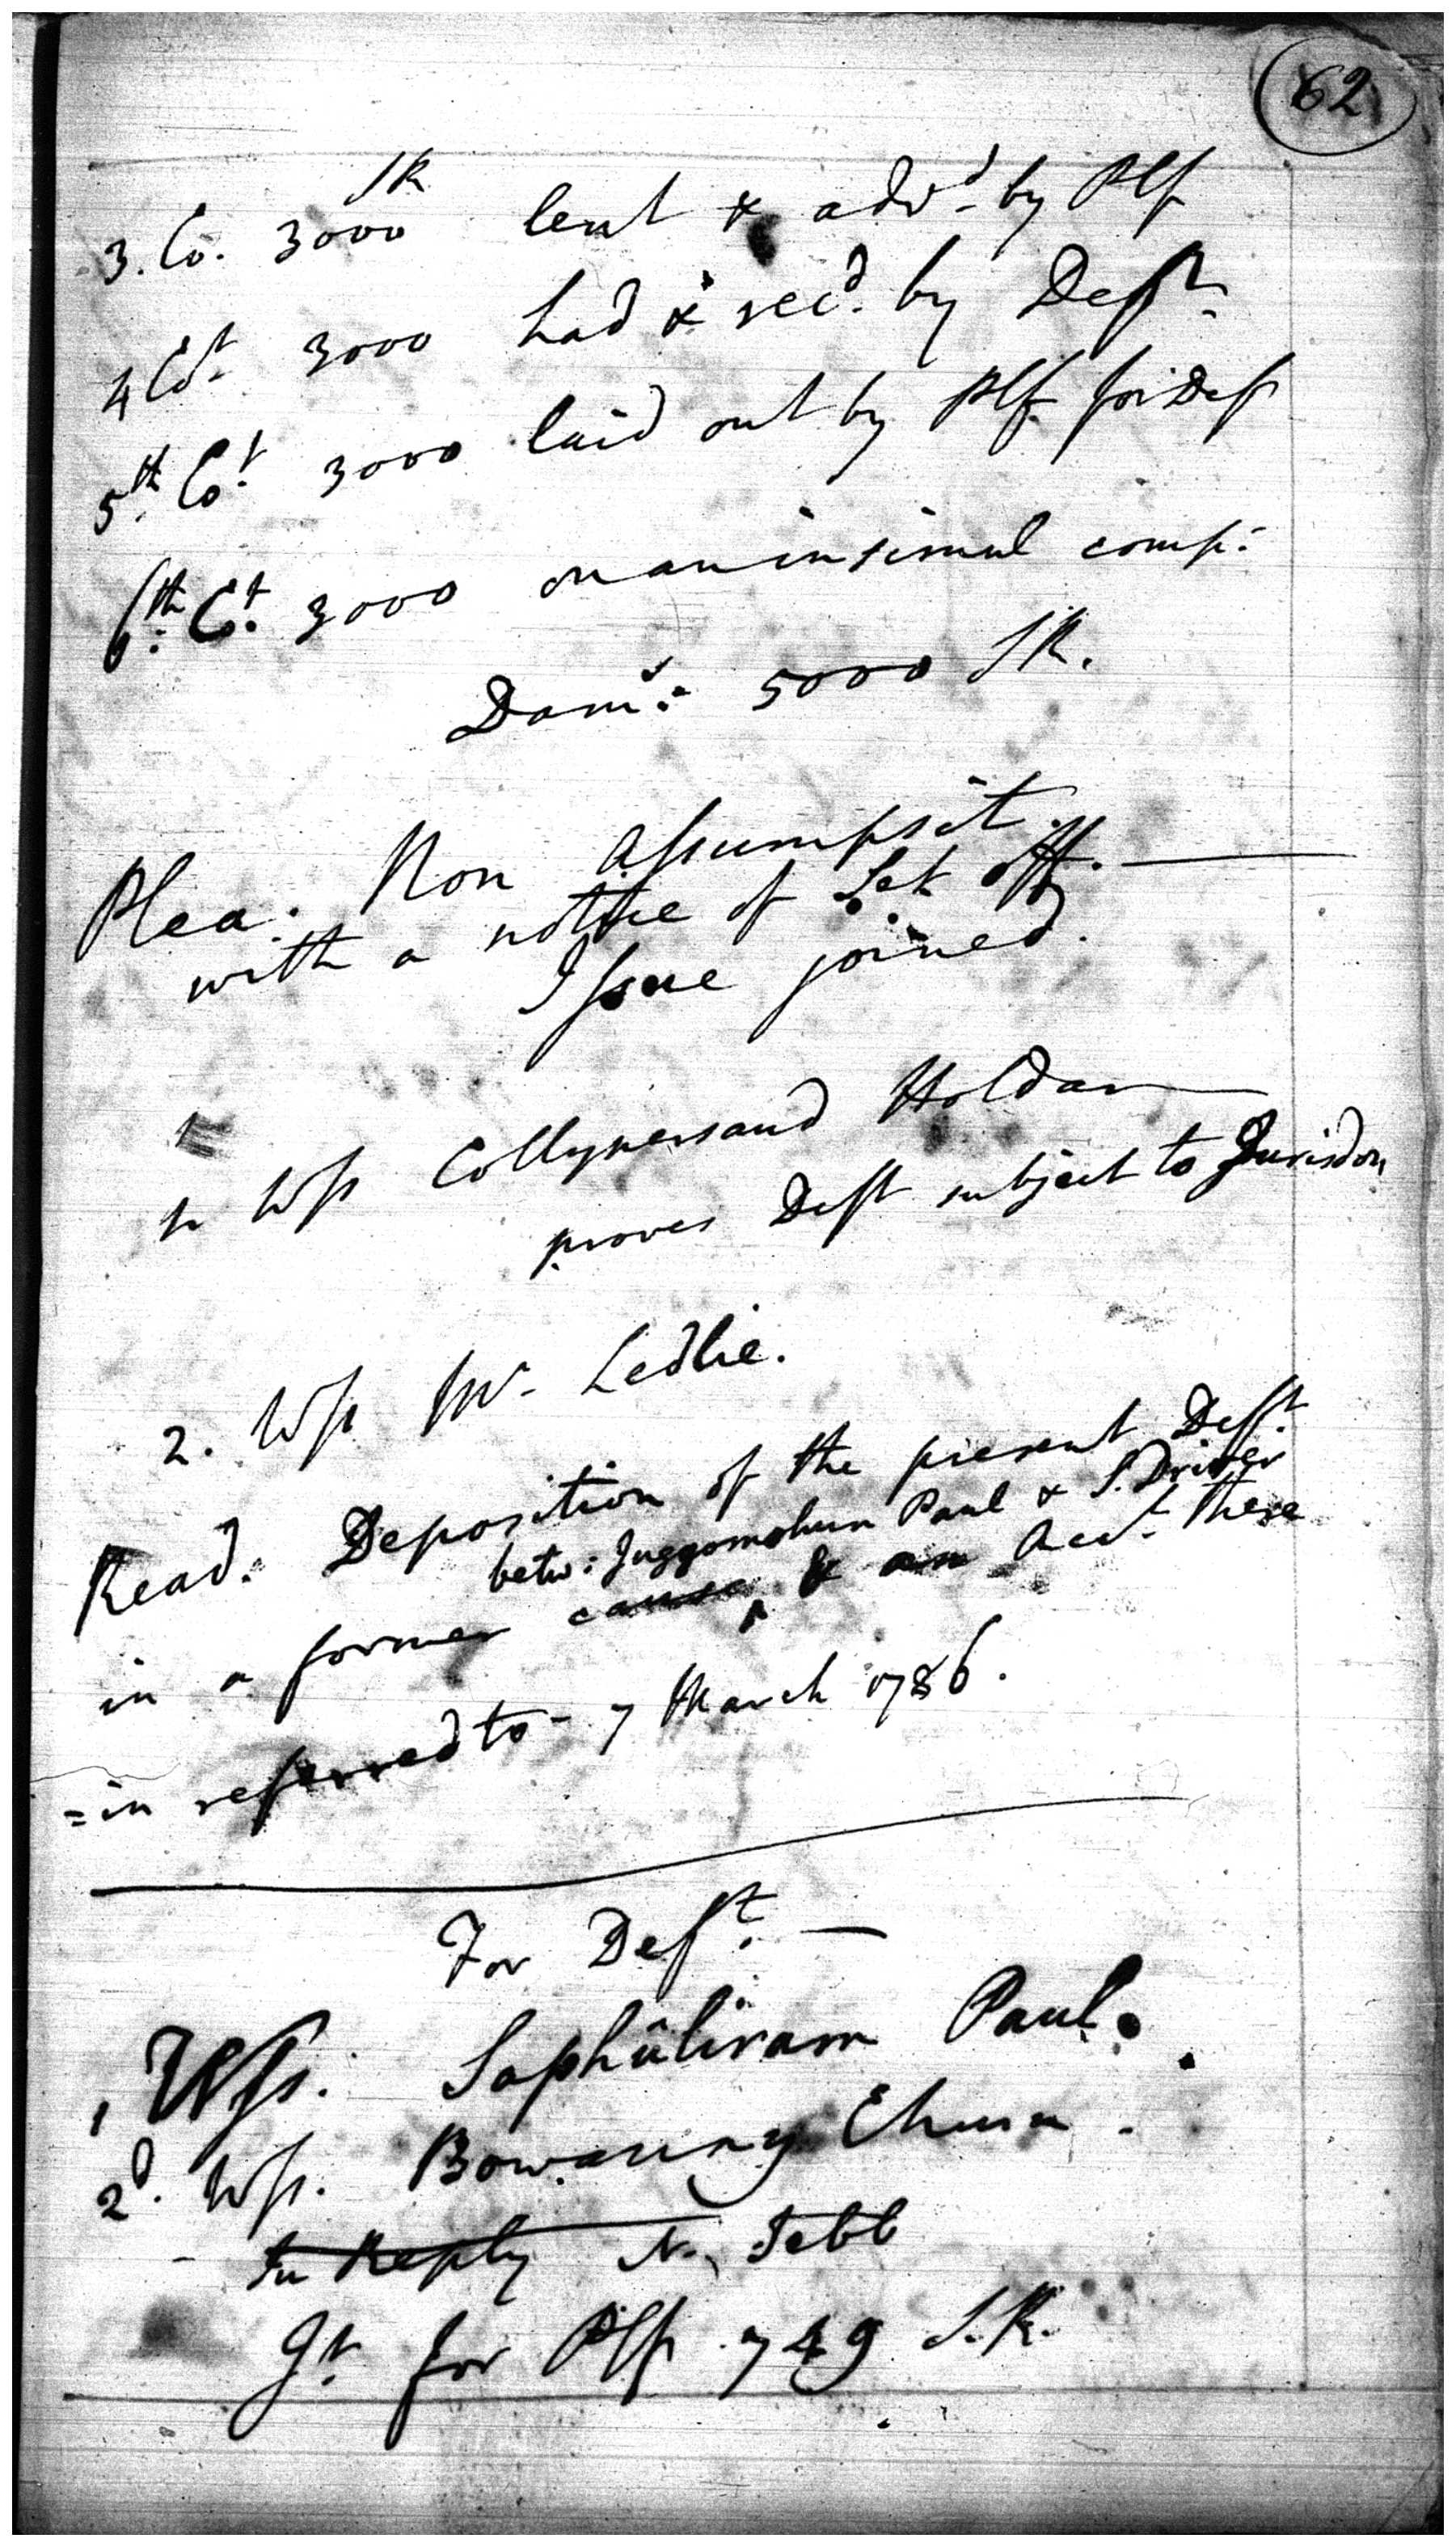 62
SR
3. Co. 3000 lent & advd. by Plf
4 Cot. 3000 had & recd. by Deft.
5th. Cot. 3000 laid out by Plf. for Def
6th. Ct. 3000 on an insimul comp:
Dams: 5000 SR.
Plea. Non Assumpsit.
with a notice of Set off.
Issue joined.
Wss Collypersaud Holdar
proves Deft subject to Jurisdon
2. Wss Mr. Ledlie.
Read. Deposition of the present Deft.
betw: Juggomohun Paul & S. Driver
in a former cause, & an Acct. there
=in referred to - 7 March 1786.
For Deft. —
1 Wss. Saphûliram Paul.
2d. Wss. Bowanny Churn.
In Reply N. Jebb
Jt. for Plf 749 S.R.